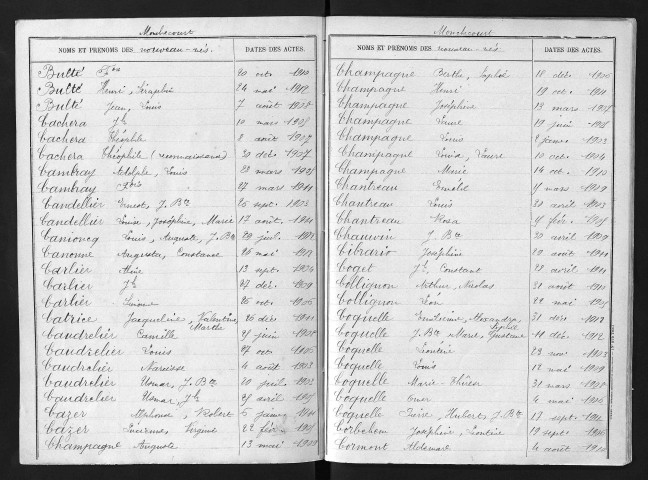 Monchecourt
NOMS ET PRENOMS DES nouveau-nés. DATES DES ACTES.
Bulté Fçois 20 oct. 1910
Bulté Henri, Séraphin 24 mai 1912
Bulté Jean, Louis 7 août 1908
Cachera Jh 10 mars 1908
Cachera Théophile 8 août 1907
Cachera Théophile (reconnaissance) 30 déc. 1907
Cambray Adolphe, Louis 22 mars 1908
Cambray Fçois 27 mars 1911
Candellier Ernest, J. Bte 26 sept. 1903
Candellier Louise, Joséphine, Marie 17 août 1911
Canioncq Louis, Auguste, J. Bte juil.
Canonne Augusta, Constance 26 mai 1912
Carlier Aline 13 sept. 1904
Carlier Jh 27 déc. 1909
Carlier Simone 26 oct. 1906
Catrice Jacqueline, Valentine, Marthe 26 déc.
Caudrelier Camille 21 juin 1908
Caudrelier Louis 27 oct. 1906
Caudrelier Narcisse 4 août 1903
Caudrelier Osmar, J. Bte 10 juil. 1903
Caudrelier Osmar, Jh 29 avril
Cazer Robert 6 janv.
Cazer Virginie 22 fév.
Champagne Auguste 13 mai
Monchecourt
NOMS ET PRENOMS DES nouveau-nés. DATES DES ACTES.
Champagne Berthe, Sophie 18 déc. 1906
Champagne Henri 19 oct. 1911
Champagne Joséphine 13 mars 1908
Champagne Laure 19 juin
Champagne Louis 2 janv. 1903
Champagne Louisa, Laure 10 oct. 1904
Champagne Marie 14 oct. 1910
Chantreau Ernest mars 1909
Chantreau Louis 20 avril 1903
Chantreau Rosa fév.
Chauvin J. Bte 30 avril 1909
Cibrario Joséphine 29 août 1911
Coget Jh, Constant 28 avril 1911
Collignon Arthur, Nicolas 31 août 1910
Collignon Léon 22 mai
Coquelle Alexandre, Sophie 31 déc. 1912
Coquelle J. Bte, Marie, Gustave 11 déc. 1912
Coquelle Léontine 23 nov. 1903
Coquelle Louis 12 mai 1909
Coquelle Marie-Thérèse 31 mars 1908
Coquelle Omer 4 mai 1906
Coquelle Hubert, J. Bte 17 sept.
Corbehem Joséphine, Léontine 19 sept. 1906
Cormont Aldemare 4 août 1910